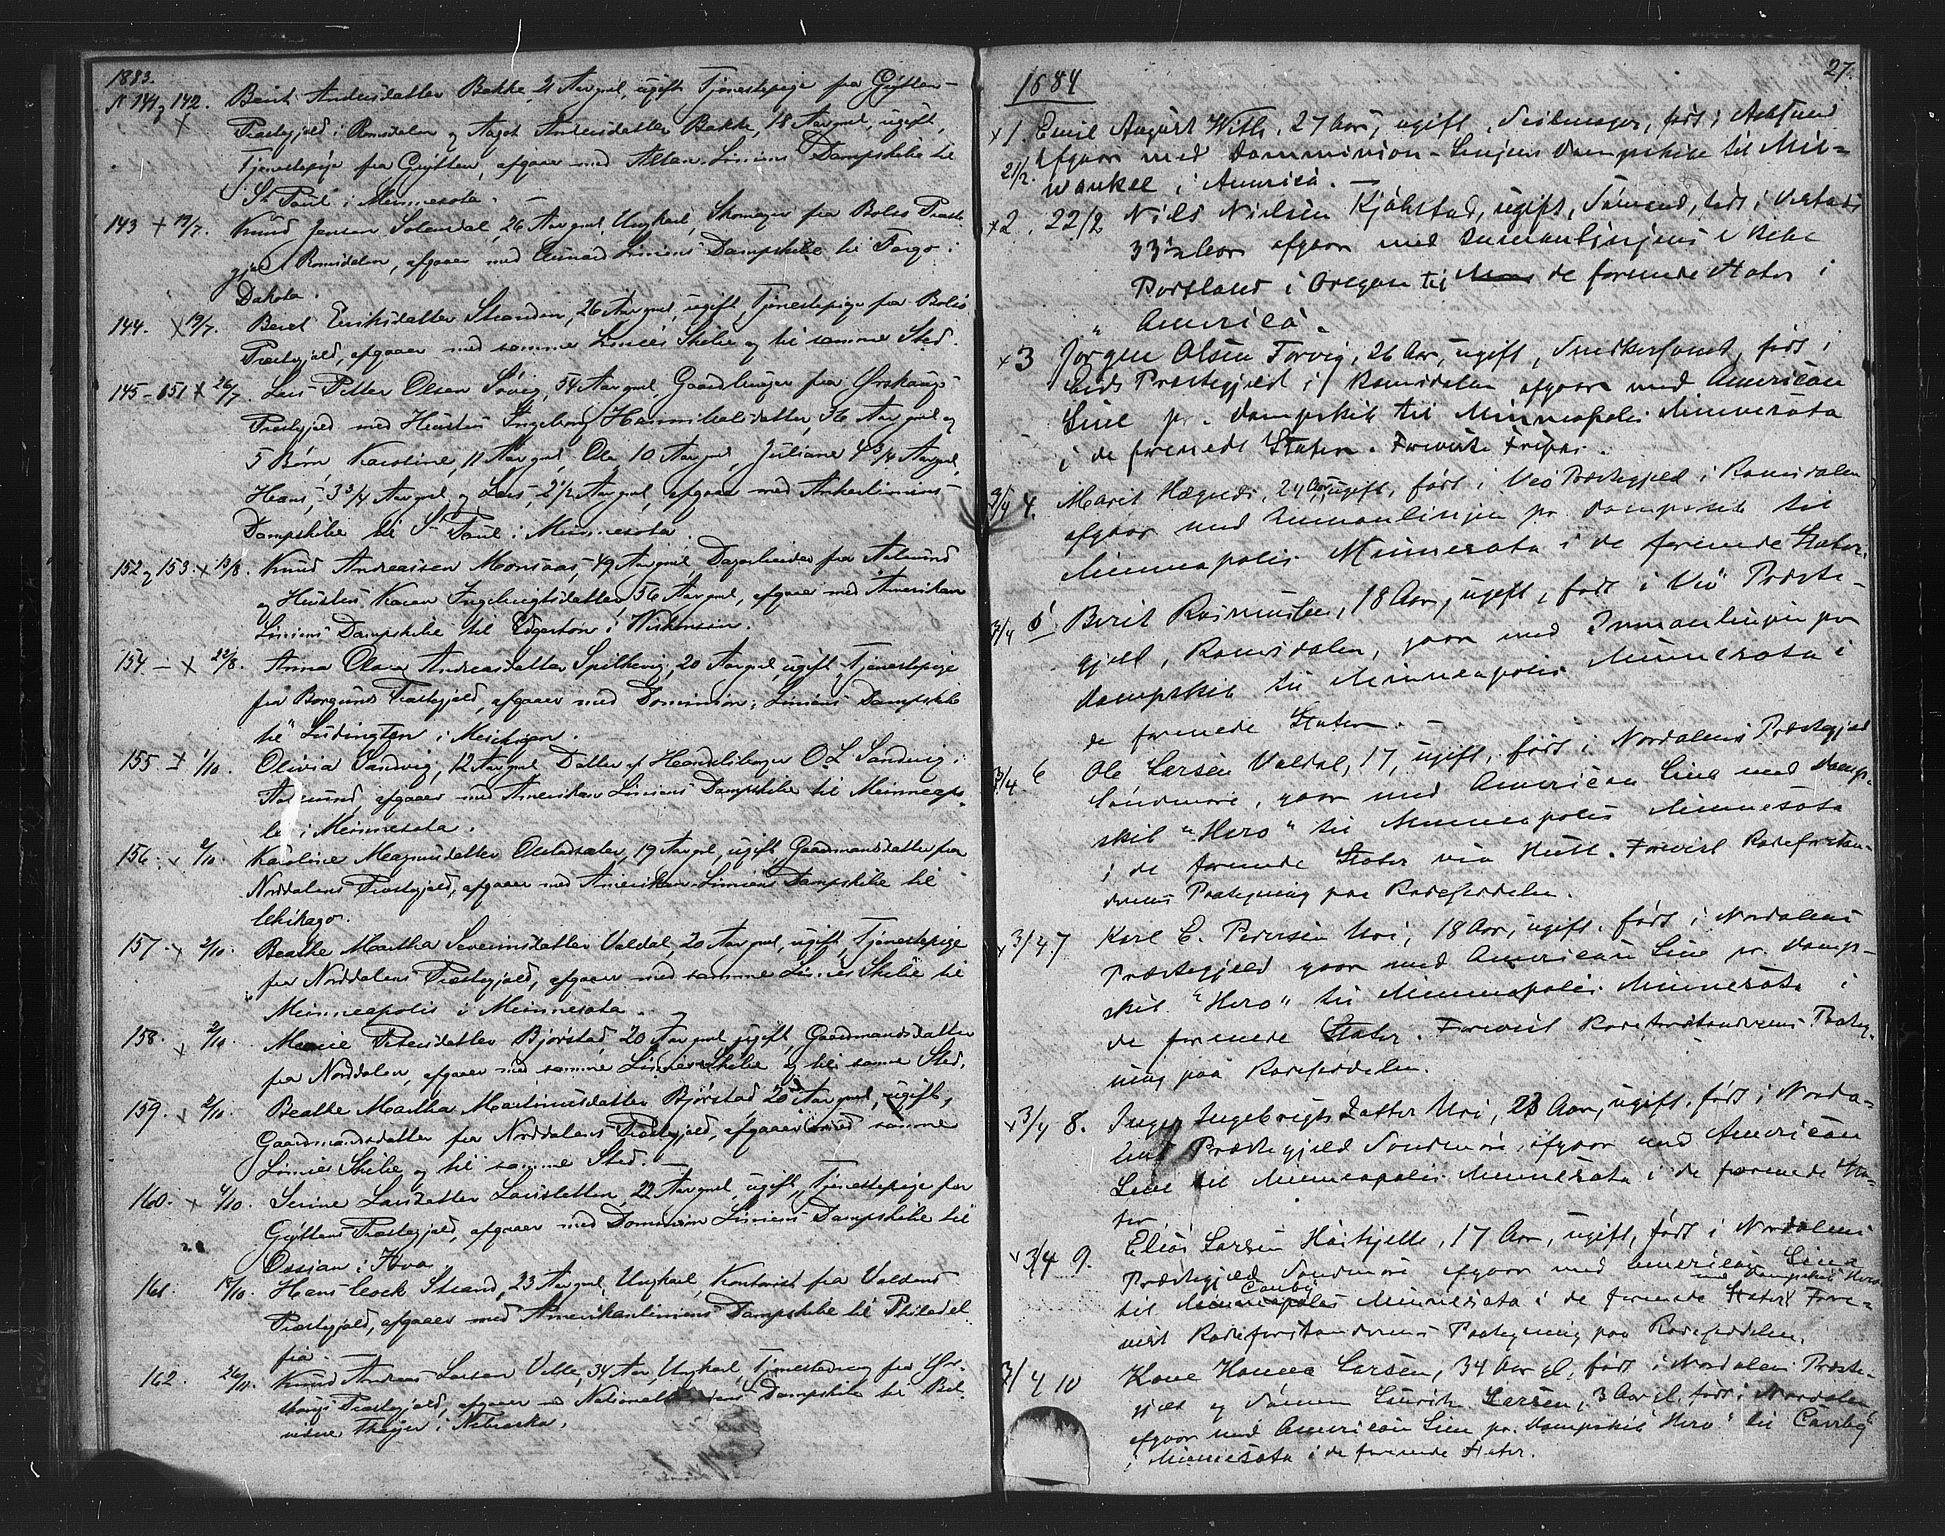 1883.
N 141 & 142. Berit Andersdatter Bakke, 21 Aar gml, ugift Tjenestepige fra Grytten
Præstegjeld i Romsdalen og Aagot Andersdatter Bakke, 18 Aar gml, ugift,
Tjenestepige fra Grytten, afgaar med Allan-Liniens Dampskibe til
St Paul i Minnesota.
143 + 19/7. Knud Jensen Solendal, 26 Aar gml, Ungkarl, Skomager fra Bolsø Præste
gjæld Romsdalen, afgaaer med Cunard Liniens Dampskibe til Fargo i
Dakota.
144. X 19/7. Beret Eriksdatter Stranden, 26 Aar gml, ugift Tjenestepige fra Bolsø
Præstegjeld, afgaaer med samme Linies Skibe og til samme Sted.
145-151 X 26/7. Lars Petter Olsen Søvig, 54 Aar gml, Gaardbruger fra Ørskougs
Præstegjeld med Hustru Ingeborg Hannibalsdatter 36 Aar gml og
5 Børn Karoline, 11 Aar gml, Ole 10 Aar gml, Juliane 4 3/4 Aar gml,
Hans, 3 3/4 Aar gml og Lars, 2 1/2 Aar gml, afgaar med Ankerliniens
Dampskibe til St Paul i Minnesota.
152 & 153. X 15/8. Knud Andreassen Monsaas, 49 Aar gml, Dagarbeider fra Aalesund
og Hustru Karen Ingebrigtsdatter 56 Aar gml, afgaar med Amerikan
Liniens Dampskibe til Edgerton i Wiskonsin.
154 - X 22/8. Anna Olava Andreasdatter Spilkevig, 20 Aar gml, ugift, Tjenestepige
fra Borgunds Præstegjeld, afgaaer med Dominion, Liniens Dampskibe
til Ludington i Mischigan.
155. X 1/10. Olivia Sandvig, 12 Aar gml, Datter af Handelsborger O. L. Sandvig i
Aalesund, afgaaer med Amerikan Liniens Dampskibe til Minneapo-
lis i Minnesota.
156. X 2/10. Karoline Magnusdatter, 19 Aar gml, ugift, Gaardmandsdatter fra
Norddalens Præstegjeld, afgaaer med Amerikan-Liniens Dampskibe til
Chikago.
157. X 2/10. Beathe Martha Severinsdatter Valdal, 20 Aar gml, ugift, Tjenestepige
fra Norddalens Præstegjeld, afgaaer med samme Linies Skibe til
Minneapolis i Minnesota.
158. X 2/10. Marie Petersdatter Bjørstad, 20 Aar gml, ugift, Gaardmandsdatter
fra Norddalen, afgaaer med samme Linies Skibe og til samme Sted.
159. X 2/10. Beathe Martha Martinusdatter Bjørstad 20 Aar gml, ugift,
Gaardmandsdatter fra Norddalens Præstegjeld, afgaaer med samme
Linies Skibe og til samme Sted.
160. X 4/10. Serine Larsdatter, 22 Aar gml, ugift, Tjenestepige fra
Gryttens Præstegjeld, afgaaer med Dominion Liniens Dampskibe til
Ossian i Iova.
161. 18/10. Hans Cock Strand, 23 Aar gml, Ungkarl, Kontorist fra Voldens
Præstegjeld, afgaaer med Amerikanliniens Dampskibe til Philadel
fia.
162. 26/11. Knud Andreas Larsen Velle, 34 Aar, Ungkarl, Tjenestedreng fra Ør-
skougs Præstegjeld, afgaaer med National Dampskibe til
i Nebraska.
27.
1884
x 1. Emil August With, 27 Aar, ugift, født i Aalesund
21/2. afgaar med Domminion-Linjens Dampskibe til Mil-
waukee i America.
x 2. 22/2 Nils Nielsen Kjølstad, ugift, Sømand, født i
33 1/2 Aar afgaar med Inmanlinjens Skibe
Portland i Oregon de forenede Stater i
America.
x 3 Jørgen Olsen Torvig, 26 Aar, ugift, født i
Eids Præstegjeld i Romsdalen afgaar med American
Line pr. Dampskib til Minneapolis Minnesota
i de forenede Stater. Foreviste Fripas.
3/4 4. Marit Hægnes, 24 Aar, ugift, født i Veø Præstegjeld i Romsdalen
afgaar med Inmanlinjen pr. Dampskib til
Minneapolis Minnesota i de forenede Stater.
3/4 5 Berit Rasmussen, 18 Aar, ugift, født i Veø Præste-
gjeld, Romsdalen, gaar med Inmanlinjen pr
Dampskib til Minneapolis Minnesota i
de forenede Stater.
3/4 6 Ole Larsen Valdal, 17, ugift, født i Nordalens Præstegjeld
Søndmøre, gaar med American Line med Damp-
skib "Hero" til Minneapolis Minnesota
i de forenede Stater via Hull. Forevist Rodeforstan-
derens Paategning paa Rodeseddelen.
x 3/4 7 Karl E. Pedersen Uri, 18 Aar, ugift, født i Nordalens
Præstegjeld gaar med American Line pr. Damp-
skib "Hero" til Minneapolis Minnesota i
de forenede Stater. Forevist Rodeforstanderens Paateg-
ning paa Rodeseddelen.
x 3/4 8. Inger Ingebrigts Datter Uri, 23 Aar, ugift, født i Norda-
lens Præstegjeld Søndmøre, afgaar med American
Line til Minneapolis Minnesota i de forenede Sta-
ter.
x 3/4 9. Elias Larsen Høihjelle, 17 Aar, ugift, født i Nordalens
Præstegjeld Søndmøre afgaar med American Line
med Dampskib Hero
Canby
til Minneapolis Minnesota i de forenede Stater. Fore-
vist Rodeforstanderens Paategning paa Rodeseddelen.
3/4 10 Kone Hanna Larsen, 34 Aar gl, født i Nordalen Præste-
gjeld og Sønnen Laurits Larsen, 3 Aar gl, født i Nordalen,
afgaar med American Line pr. Dampskib "Hero" til Canby
i Minnesota i de forenede Stater.